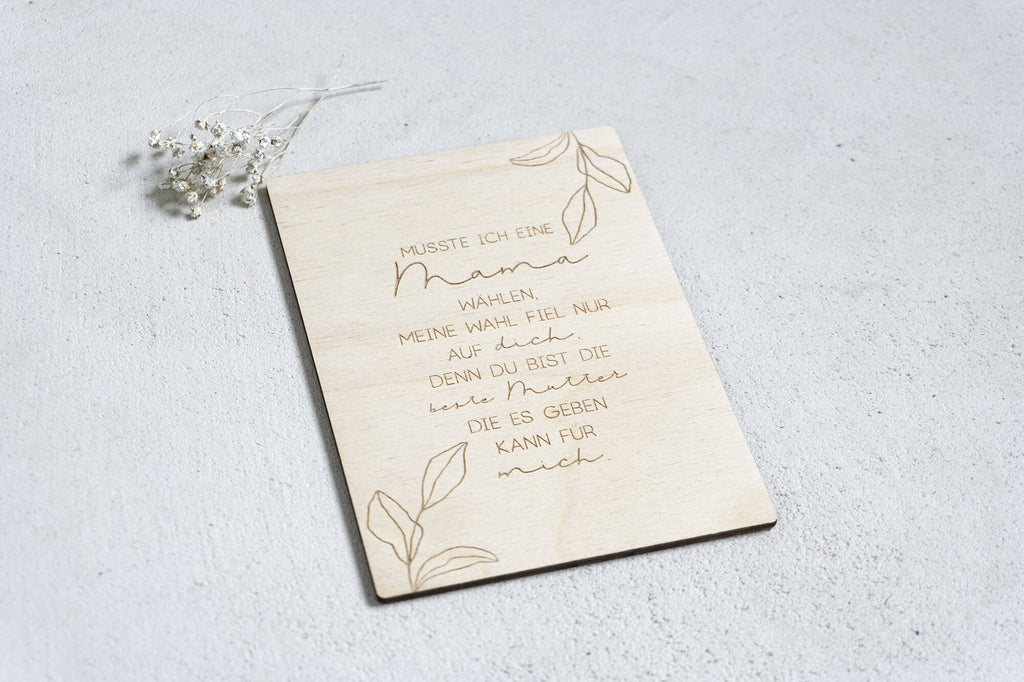 MÜSSTE ICH EINE
Mama
WÄHLEN,
MEINE WAHL FIEL NUR
AUF dich.
DENN DU BIST DIE
beste Mutter
DIE ES GEBEN
KANN FÜR
mich.